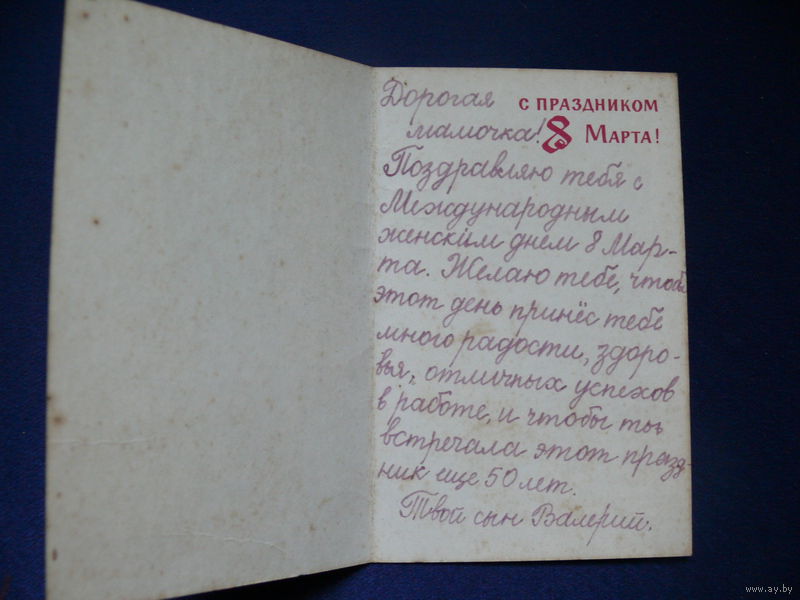 Дорогая С ПРАЗДНИКОМ
мамочка! 8 МАРТА!
Поздравляю тебя с
Международным
женским днем 8 Мар-
та. Желаю тебе, чтобы
этот день принёс тебе
много радости, здоро-
вья, отличных успехов
в работе, и чтобы ты
встречала этот празд-
ник еще 50 лет.
Твой сын Валерий.
www.ay.by